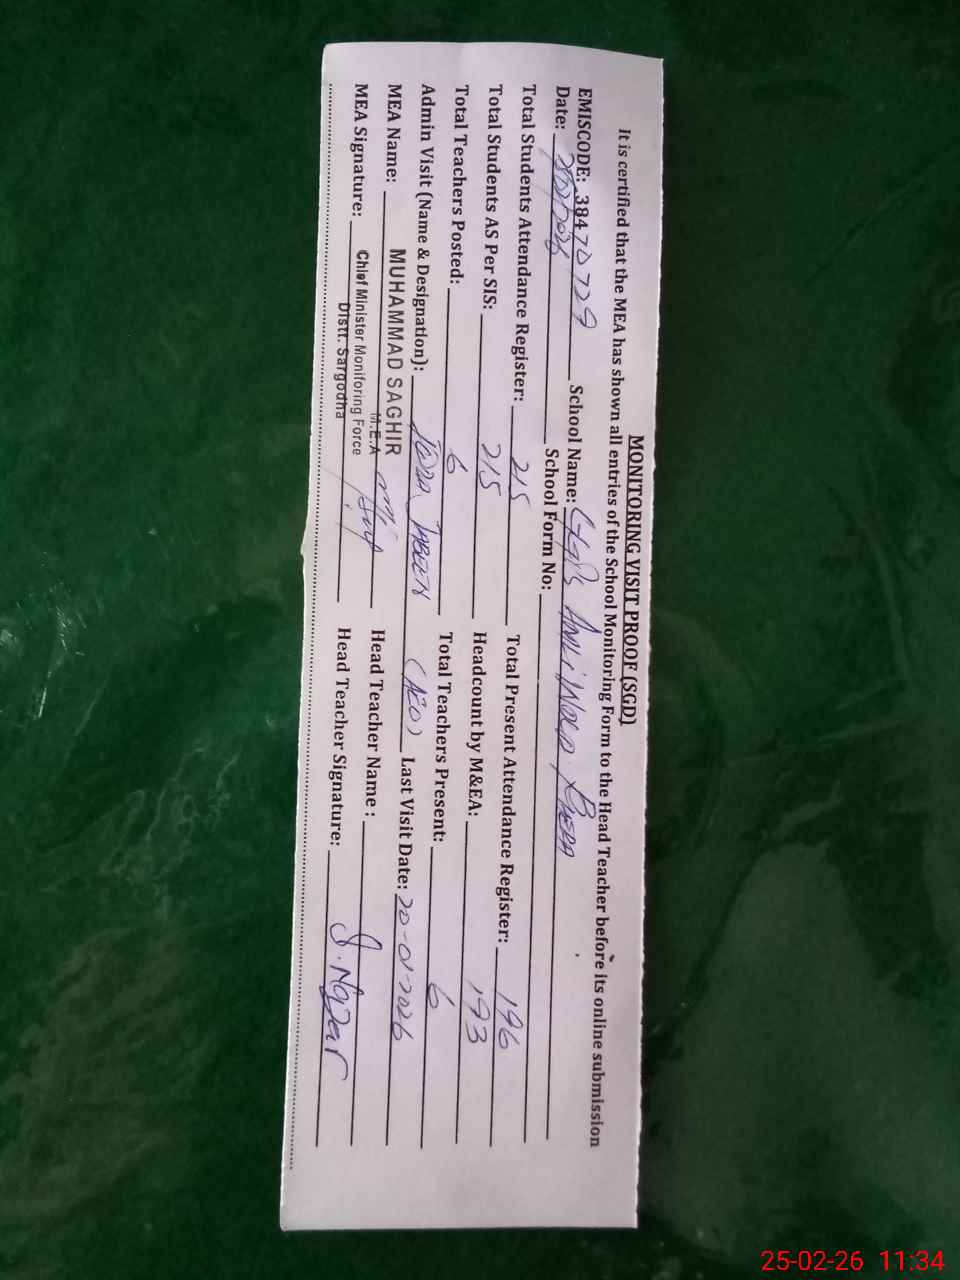 MONITORING VISIT PROOF (SGD)
It is certified that the MEA has shown all entries of the School Monitoring Form to the Head Teacher before its online submission
EMISCODE: 38470729 School Name: GGPS
Date: School Form No:
Total Students Attendance Register: 215 Total Present Attendance Register: 196
Total Students AS Per SIS: 215 Headcount by M&EA: 193
Total Teachers Posted: 6 Total Teachers Present: 6
Admin Visit (Name & Designation): (AEO) Last Visit Date: 20-01-2026
MEA Name: MUHAMMAD SAGHIR Head Teacher Name :
M.E.A
MEA Signature: Chief Minister Monitoring Force Head Teacher Signature:
Distt. Sargodha
25-02-26 11:34